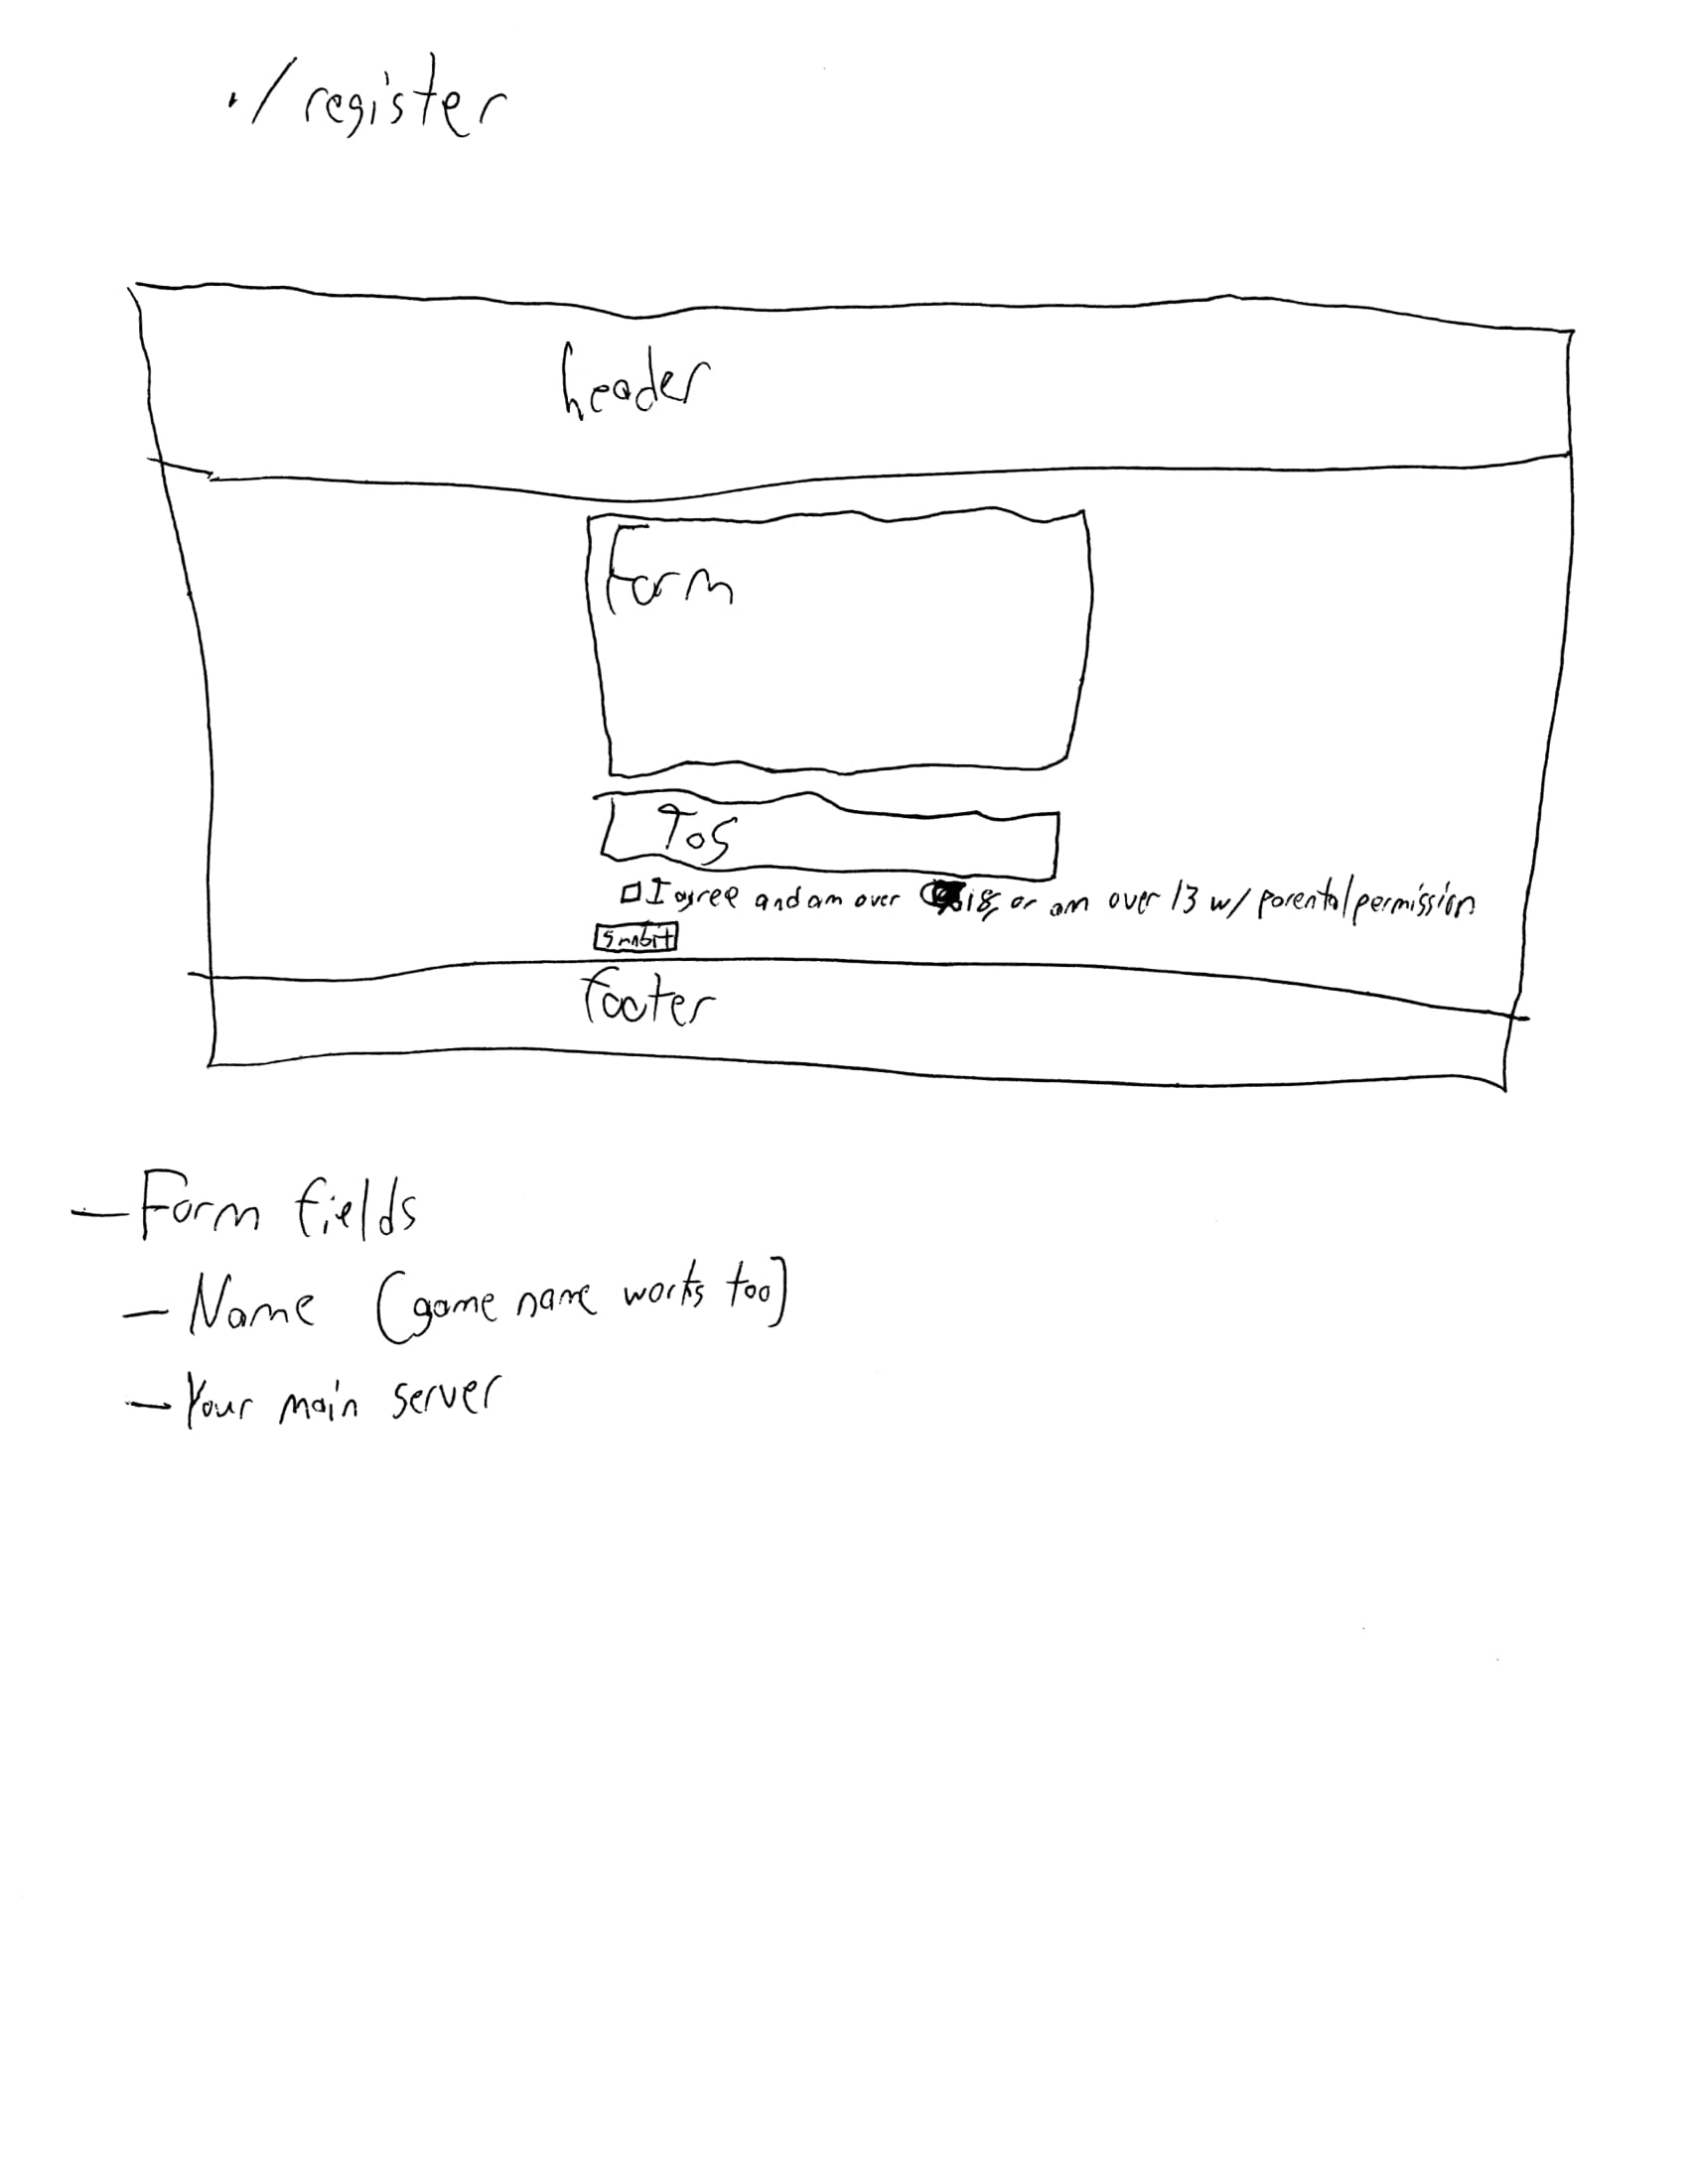 ./register
header
Form
ToS
I agree and am over 18, or am over 13 w/ parental permission
Submit
footer
- Form fields
- Name (game name works too)
- Your main server